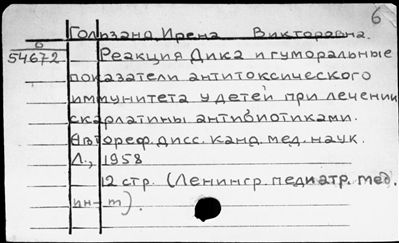 6
Гользанд Ирена Викторовна.
6
54672
Реакция Дика и гуморальные
показатели антитоксического
иммунитета у детей при лечении
скарлатины антибиотиками.
Автореф. дисс. канд. мед. наук.
Л., 1958
12 стр. (Ленингр. педиатр. мед.
ин-т).